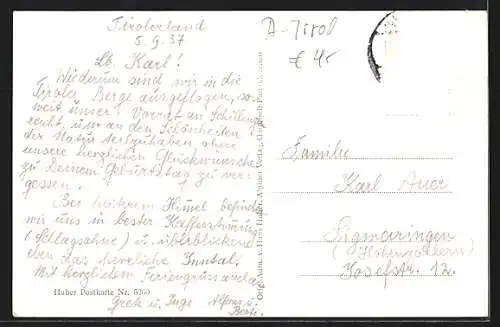 Tirolerland
5.9.37
Lb. Karl!
Wiederum sind wir in die
Tiroler Berge ausgeflogen, so-
weit unser Vorrat an Schillingen
reicht, um an den Schönheiten
der Natur teilzuhaben, ohne
unsere herzlichen Glückwünsche
zu Deinem Geburtstag zu ver-
gessen.
Bei heitrem Himmel befinden
wir uns in bester Kaffeestimmung
(Schlagsahne) u. überblicken
eben das herrliche Inntal.
Mit herzlichen Feriengrüssen
Gretl u. Inge Alfons u.
Berti.
Huber Postkarte Nr. 5260
A-Tirol
€ 4,-
Familie
Karl Auer
Sigmaringen
(Hohenzollern)
Josefstr. 12.